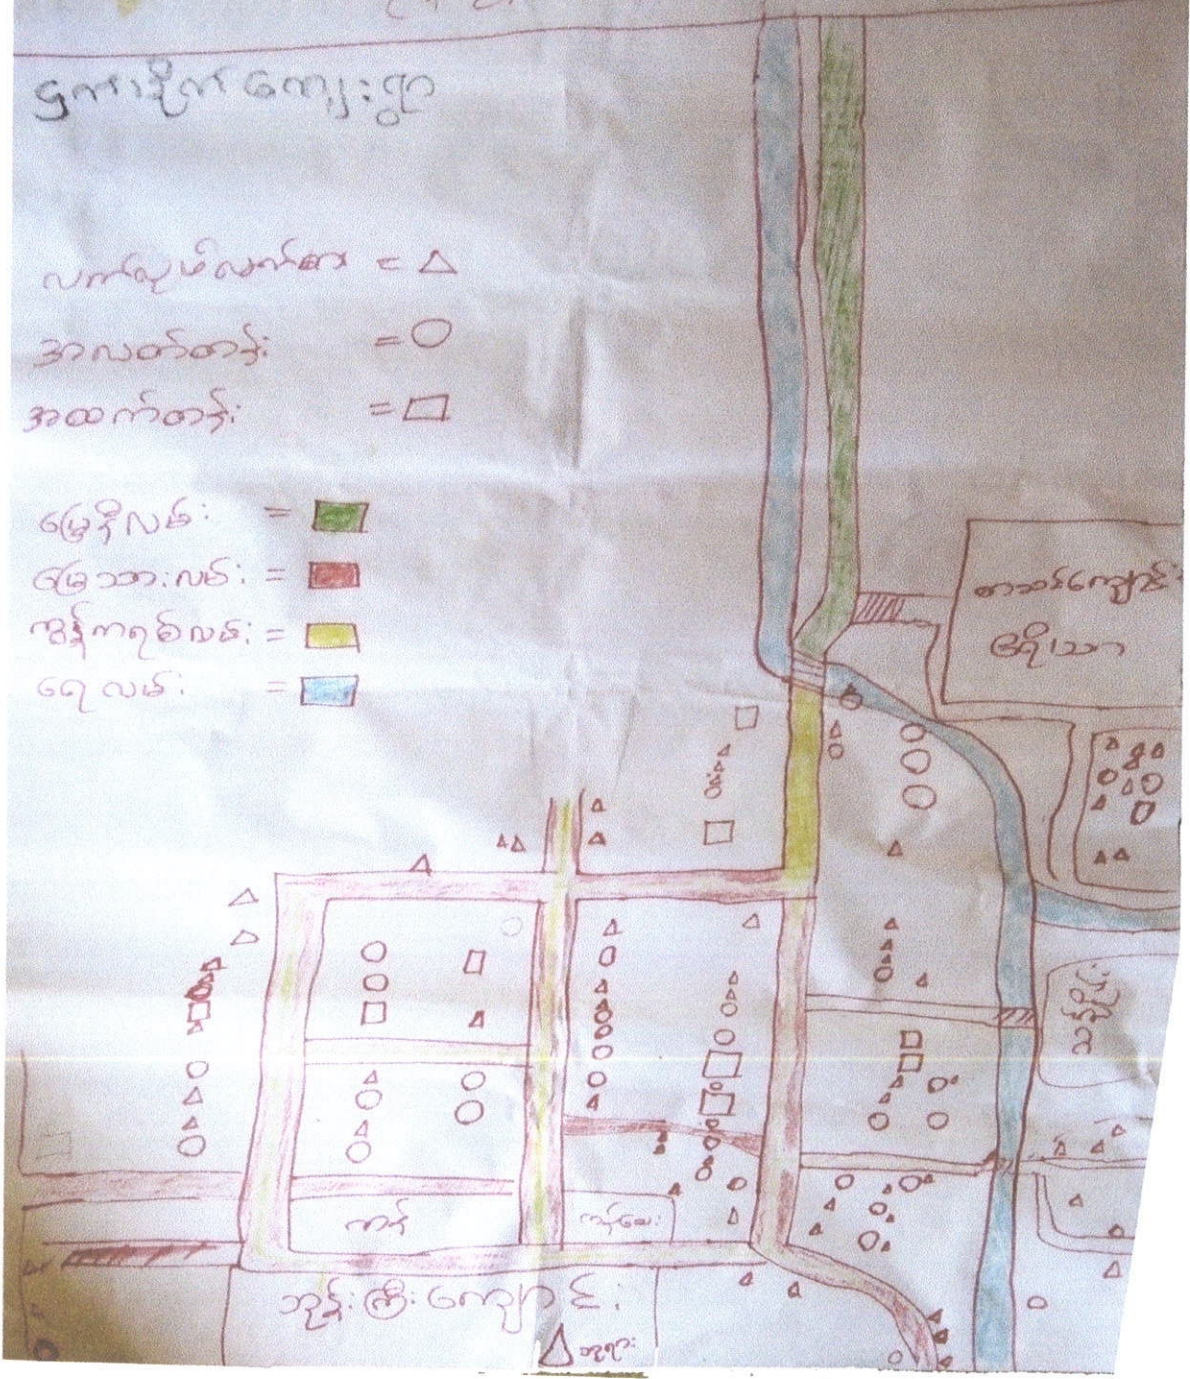 ဌကာနိုက် ကျေးရွာ
လက်လုပ်လက်စား = △
အလတ်တန်း = ○
အထက်တန်း = □
မြေနီလမ်း =
မြေသားလမ်း =
ကွန်ကရစ်လမ်း =
ရေလမ်း =
စာသင်ကျောင်း
ဧရိယာ
သင်္ချိုင်း
ကန်
ကန်ဟေး
ဘုန်းကြီးကျောင်း
ဘုရား